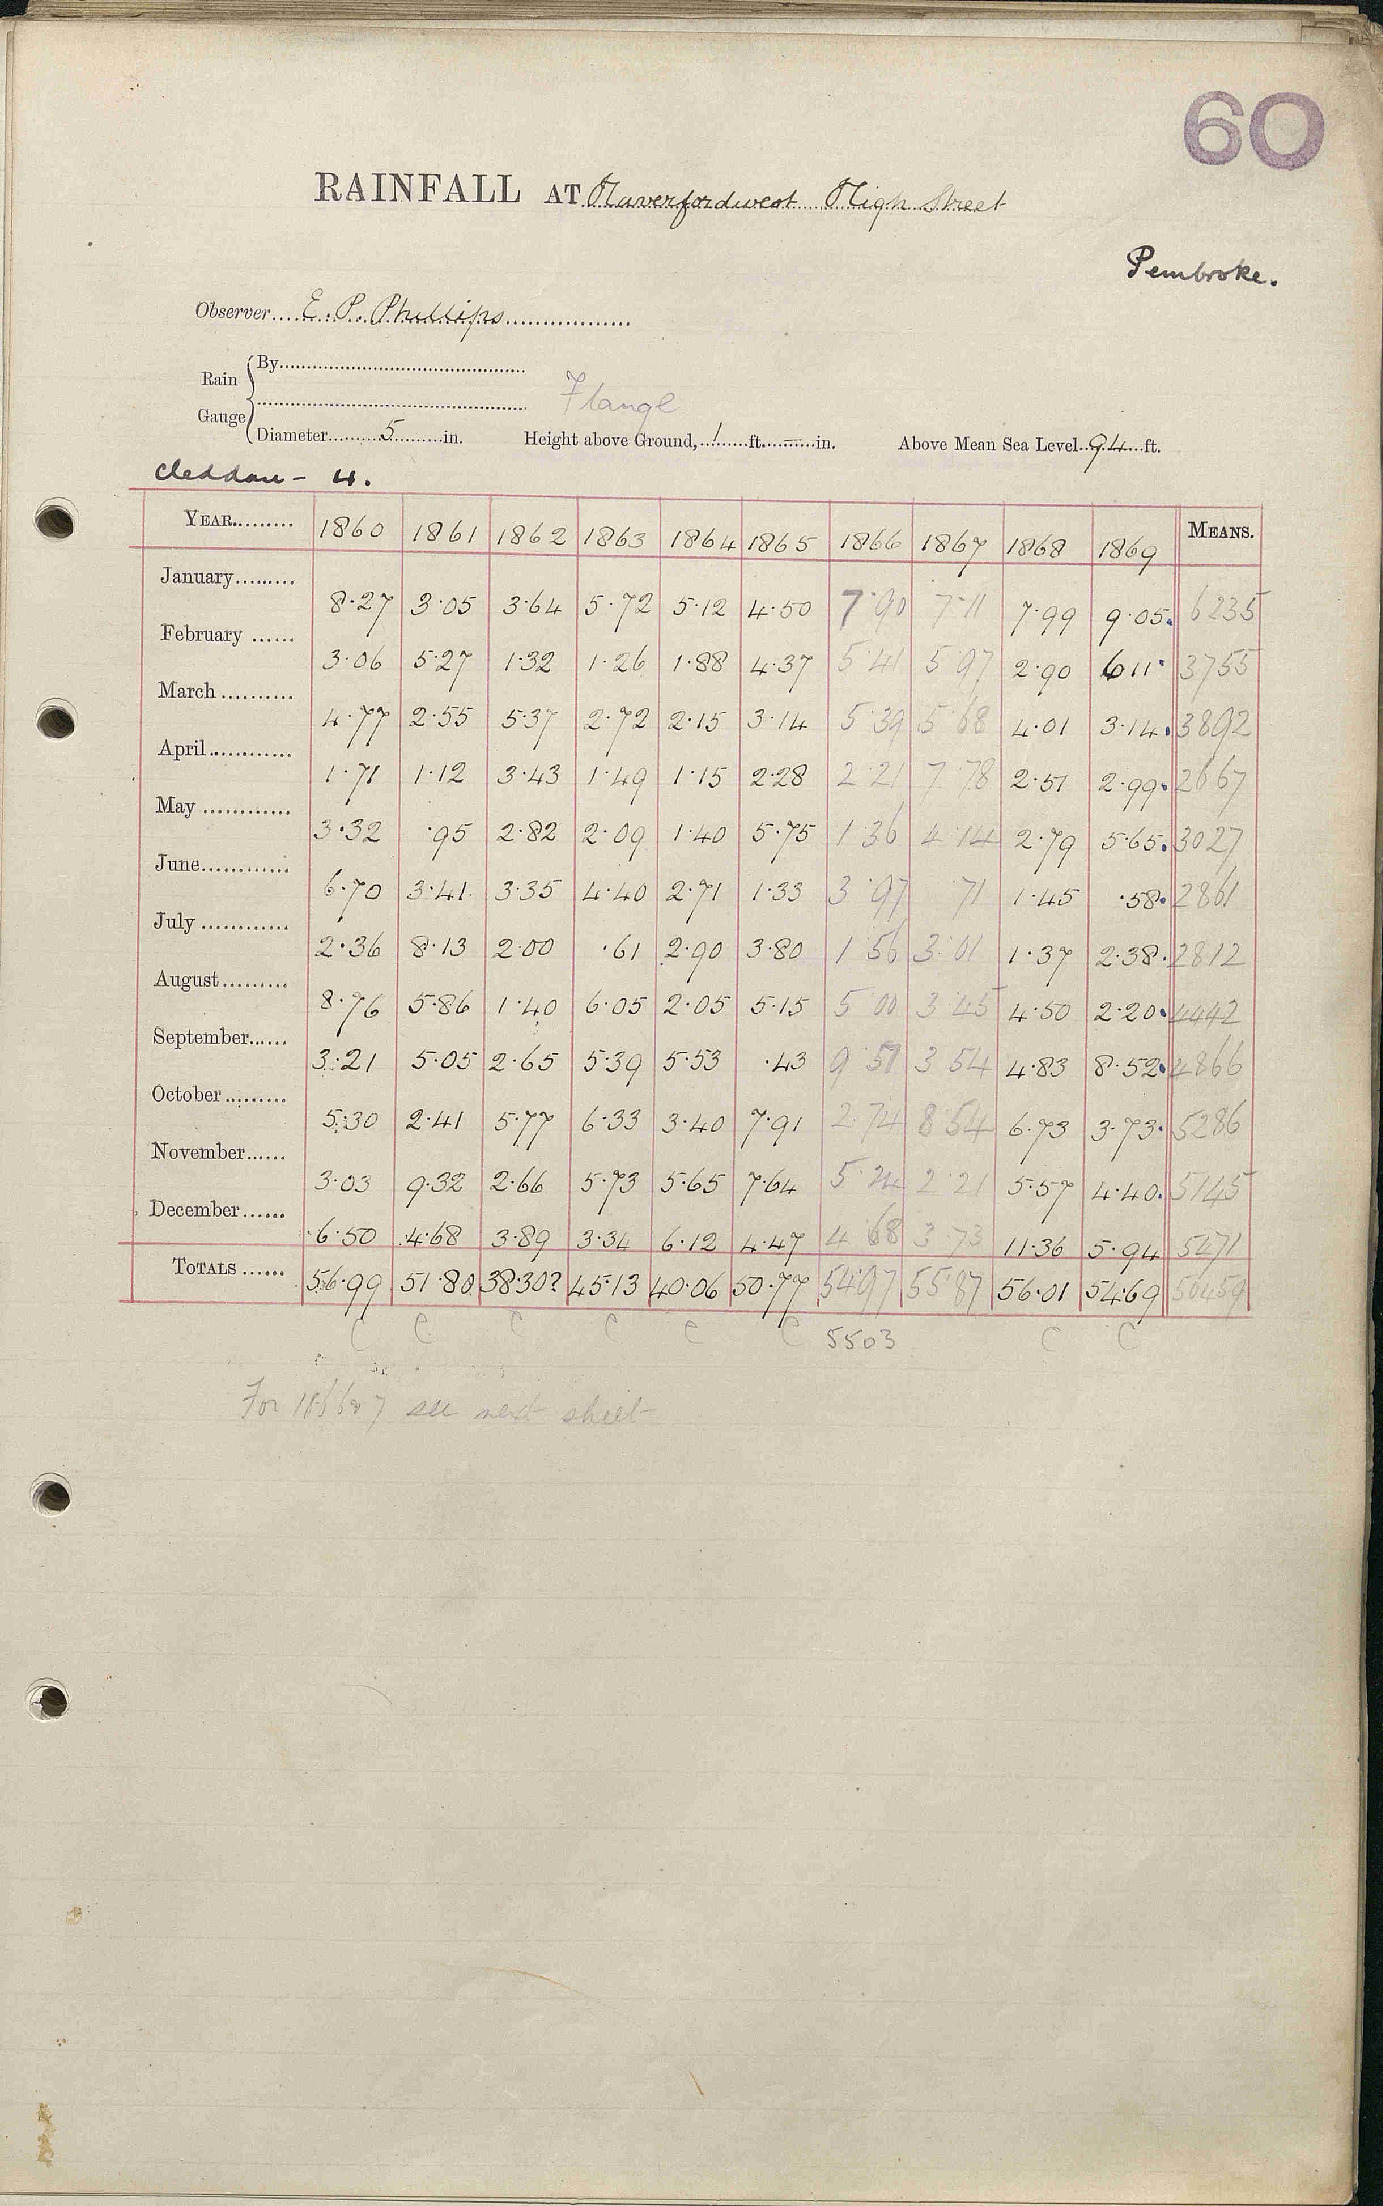 60
RAINFALL AT Haverfordwest High Street
Pembroke.
Observer.... E. P. Phillips
Rain Gauge { By
Flange
Diameter 5 in. Height above Ground, 1 ft. — in. Above Mean Sea Level 94 ft.
Cleddau - 4.
YEAR 1860 1861 1862 1863 1864 1865 1866 1867 1868 1869 MEANS.
January 8.27 3.05 3.64 5.72 5.12 4.50 7.90 7.11 7.99 9.05 6235
February 3.06 5.27 1.32 1.26 1.88 4.37 5.41 5.97 2.90 6.11 3755
March 4.77 2.55 5.37 2.72 2.15 3.14 5.39 5.68 4.01 3.14 3892
April 1.71 1.12 3.43 1.49 1.15 2.28 2.21 7.78 2.51 2.99 2667
May 3.32 .95 2.82 2.09 1.40 5.75 1.36 4.14 2.79 5.65 3027
June 6.70 3.41 3.35 4.40 2.71 1.33 3.97 .71 1.45 .58 2861
July 2.36 8.13 2.00 .61 2.90 3.80 1.56 3.01 1.37 2.38 2812
August 8.76 5.86 1.40 6.05 2.05 5.15 5.00 3.45 4.50 2.20 4442
September 3.21 5.05 2.65 5.39 5.53 .43 3.54 4.83 8.52 4866
October 5.30 2.41 5.77 6.33 3.40 7.91 2.74 8.54 6.73 3.73 5286
November 3.03 9.32 2.66 5.73 5.65 7.64 5.24 2.21 5.57 4.40 5145
December 6.50 4.68 3.89 3.34 6.12 4.47 4.68 3.73 11.36 5.94 5471
TOTALS 56.99 51.80 38.30? 45.13 40.06 50.77 54.97 55.87 56.01 54.69 50459
C C C C C C 5503 C C
For 1866 & 7 see next sheet